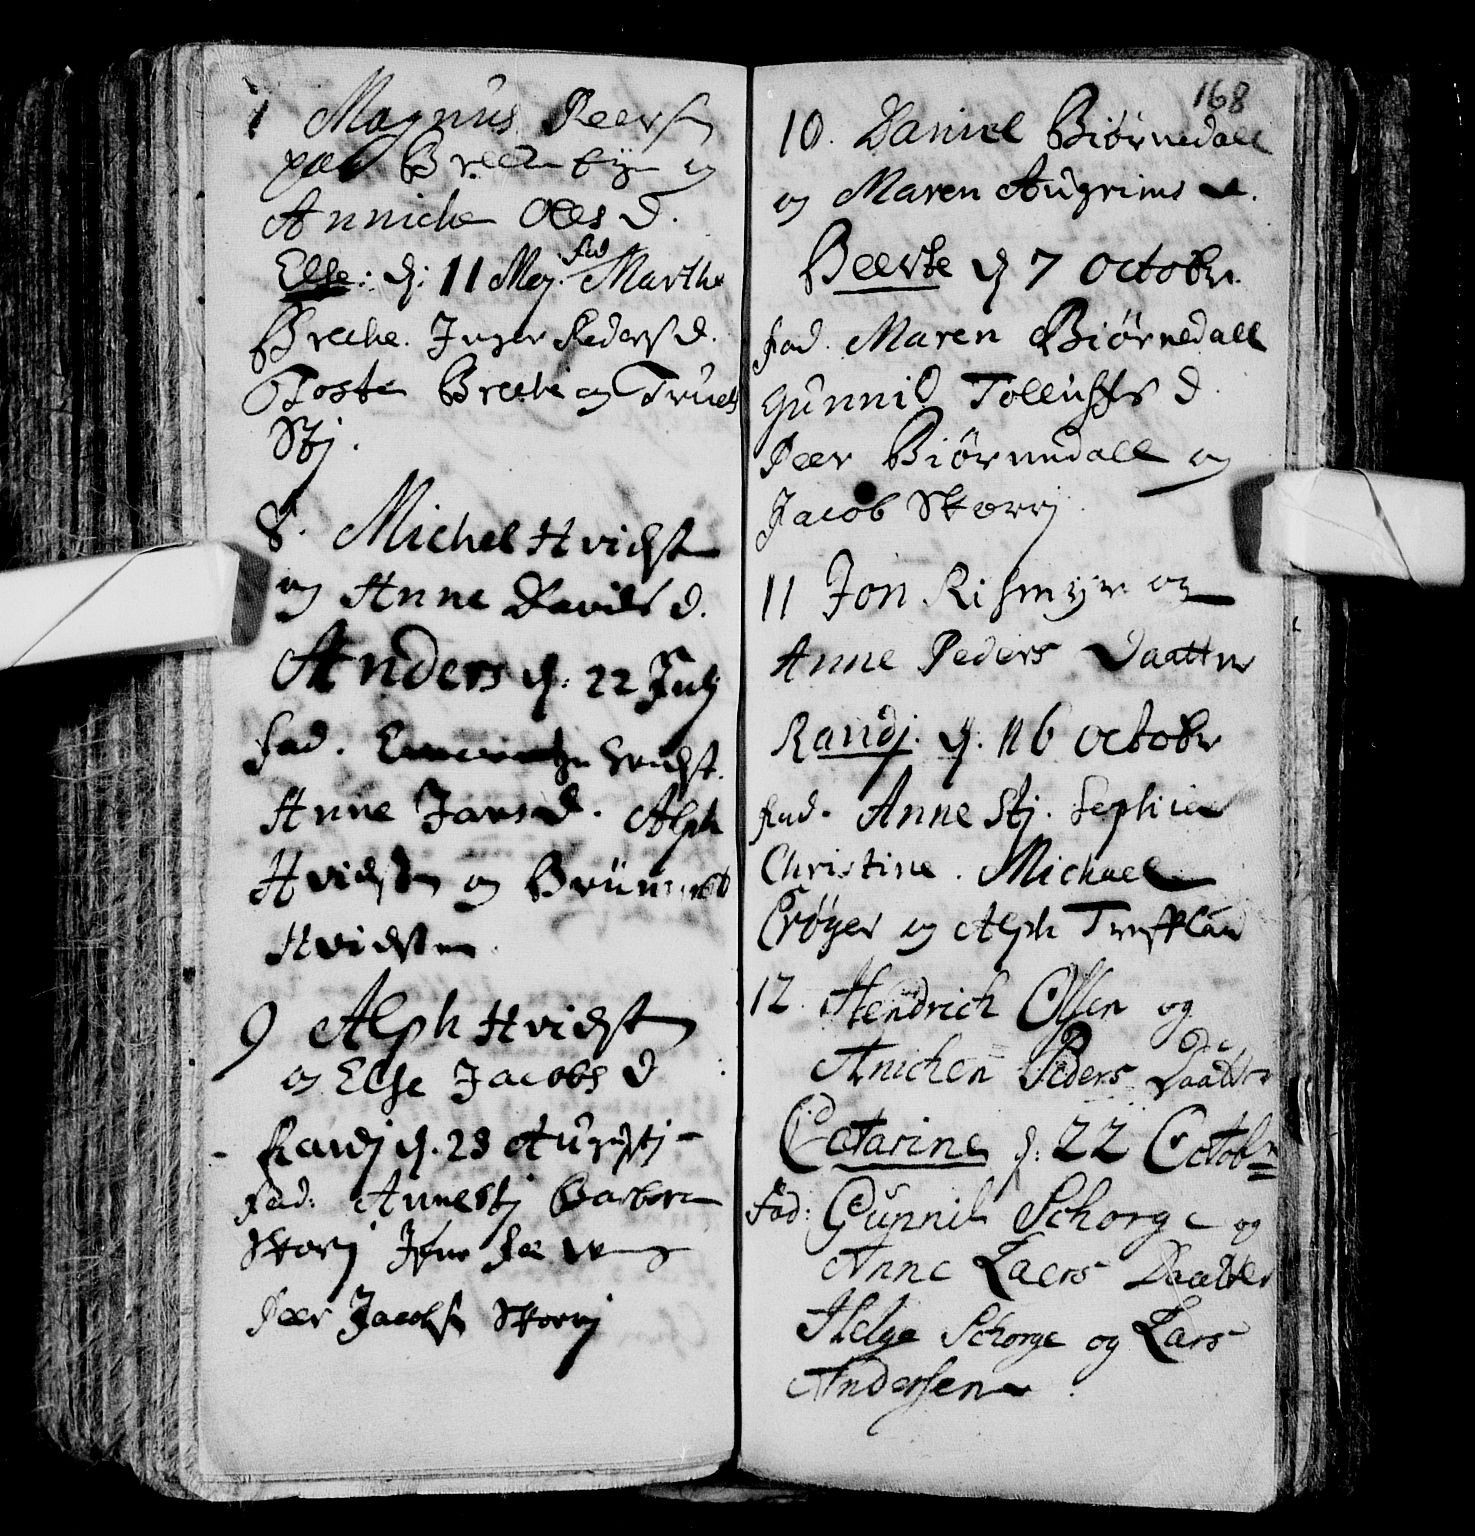 Magnus Peers
paa
og
Anniche Oels D.
fad
Else: d: 11 Mej. Marthe
Breche. Inger Peders D.
Toste Breche og Truels
Stj.
8. Michel Hvidst
og Anne Davids D.
Anders d. 22 Julj
fad. Hvidst.
Anne Jans D. Alph
Hvidsten og
Hvidsten
9 Alph Hvidsten
og Else Jacobs D
Randj d. 28 Augustj
fad: Anne Stj Barbara
Skorj
Peer Jacobs Skorj
168
10. Daniel Biørnedall
og Maren Augrims D.
Beerte d 7 Octobr.
fad. Maren Biørnedall
Gunnil D
Peer Biørnedall og
Jacob Skorj
11 Jon Rismyr og
Anne Peders Daatter
Randj. d. 16 Octobr
fad. Anne Stj. Sephia
Christine. Michael
Crøger og Alph
12. Hendrich Olsen og
Anichen Peders Daatter
Catarine d: 22 Octobr
fad: Gunnil Schorge og
Anne Laers Daatter
Helge Schorge og Lars
Andersen.